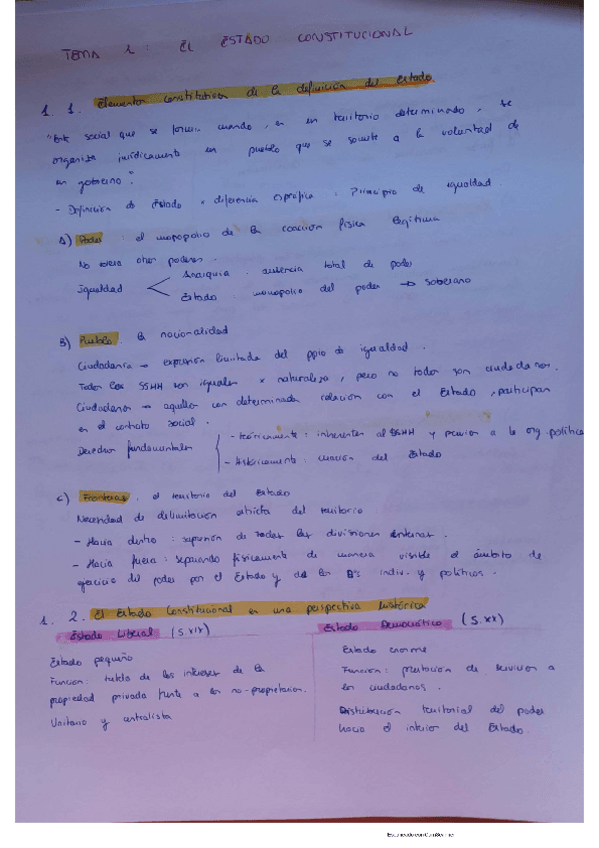 TEMA 1: EL ESTADO CONSTITUCIONAL
1. 1. Elementos constitutivos de la definición del Estado
"Ente social que se forma cuando, en un territorio determinado, se
organiza jurídicamente un pueblo que se somete a la voluntad de
un gobierno".
- Definición de Estado x diferencia específica: Principio de igualdad.
A) Poder: el monopolio de la coacción física legítima
No tolera otros poderes.
Igualdad
Anarquía: ausencia total de poder
Estado: monopolio del poder → soberano
B) Pueblo: la nacionalidad
Ciudadanía → expresión limitada del ppio de igualdad.
Todos los SSHH son iguales x naturaleza, pero no todos son ciudadanos.
Ciudadanos → aquellos con determinada relación con el Estado, participan
en el contrato social.
Derechos fundamentales
- teóricamente: inherentes al SSHH y previos a la org. política
- Históricamente: creación del Estado
C) Fronteras: el territorio del Estado
Necesidad de delimitación estricta del territorio
- Hacia dentro: supresión de todas las divisiones internas.
- Hacia fuera: separando físicamente de manera visible el ámbito de
ejercicio del poder por el Estado y de los indiv. y políticos.
1. 2. El Estado Constitucional en una perspectiva histórica
Estado Liberal (S. XIX)
Estado pequeño
Función: tutela de los intereses de la
propiedad privada frente a los no-propietarios.
Unitario y centralista
Estado Democrático (S. XX)
Estado enorme
Función: prestación de servicios a
los ciudadanos.
Distribución territorial del poder
hacia el interior del Estado.
Escaneado con CamScanner